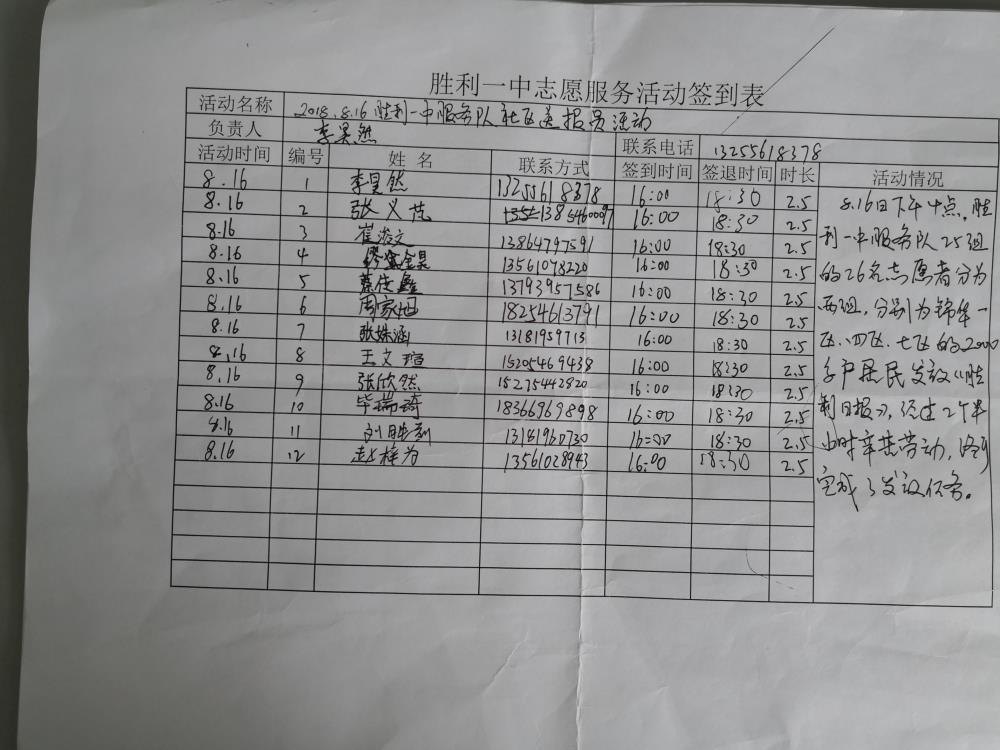 胜利一中志愿服务活动签到表
活动名称 2018.8.16胜利一中服务队社区送报员活动
负责人 李昊然 联系电话 13255618378
活动时间 编号 姓名 联系方式 签到时间 签退时间 时长 活动情况
8.16 1 李昊然 13255618378 16:00 18:30 2.5
8.16 2 张义 16:00 18:30 2.5
8.16 3 崔浩文 13864797591 16:00 18:30 2.5
8.16 4 13561078220 16:00 18:30 2.5
8.16 5 13793957586 16:00 18:30 2.5
8.16 6 周家 18254613791 16:00 18:30 2.5
8.16 7 张姝涵 13181959713 16:00 18:30 2.5
8.16 8 王文瑄 15205469438 16:00 18:30 2.5
8.16 9 张欣然 15275442820 16:00 18:30 2.5
8.16 10 毕瑞琦 18366969898 16:00 18:30 2.5
8.16 11 刘胜 13181960730 16:00 18:30 2.5
8.16 12 赵梓为 13561028943 16:00 18:30 2.5
8.16日下午 点,胜
利一中服务队25组
的26名志愿者分为
两组,分别为锦华一
区、四区、七区的2000
多户居民发放《胜
利日报》,经过2个半
小时辛苦劳动,终于
完成了发放任务。